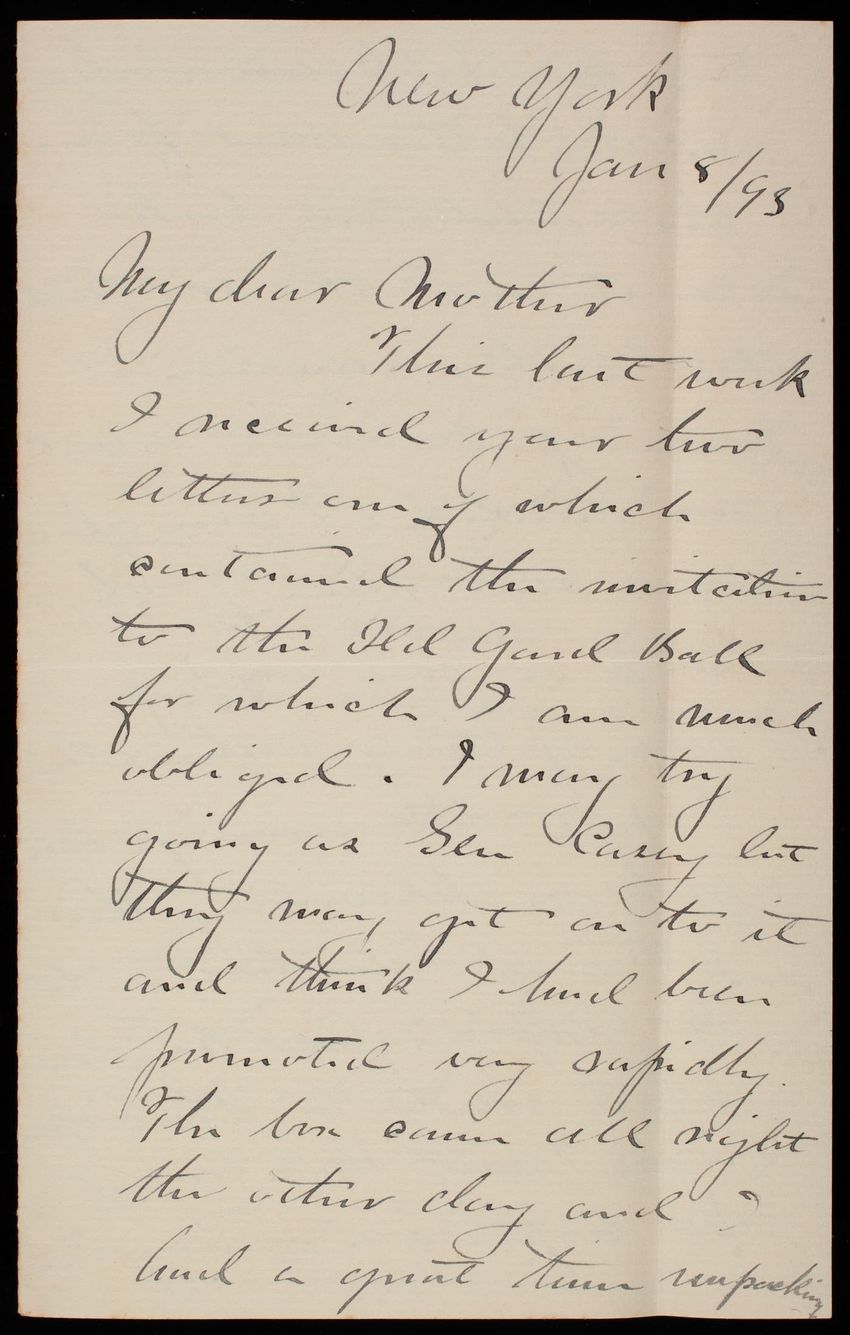 New York
Jan 8/93
My dear Mother
This last week
I received your two
letters one of which
contained the invitation
to the Old Guard Ball
for which I am much
obliged. I may try
going as Gen Casey but
they may get on to it
and think I had been
promoted very rapidly.
The box came all right
the other day and I
had a great time unpacking